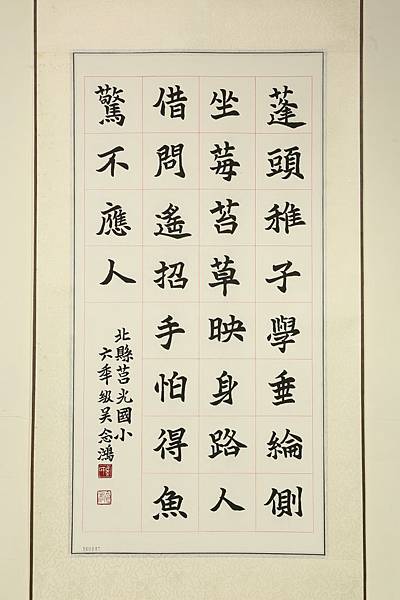 蓬頭稚子學垂綸側
坐莓苔草映身路人
借問遙招手怕得魚
驚不應人
北縣莒光國小
六年級吴念鴻